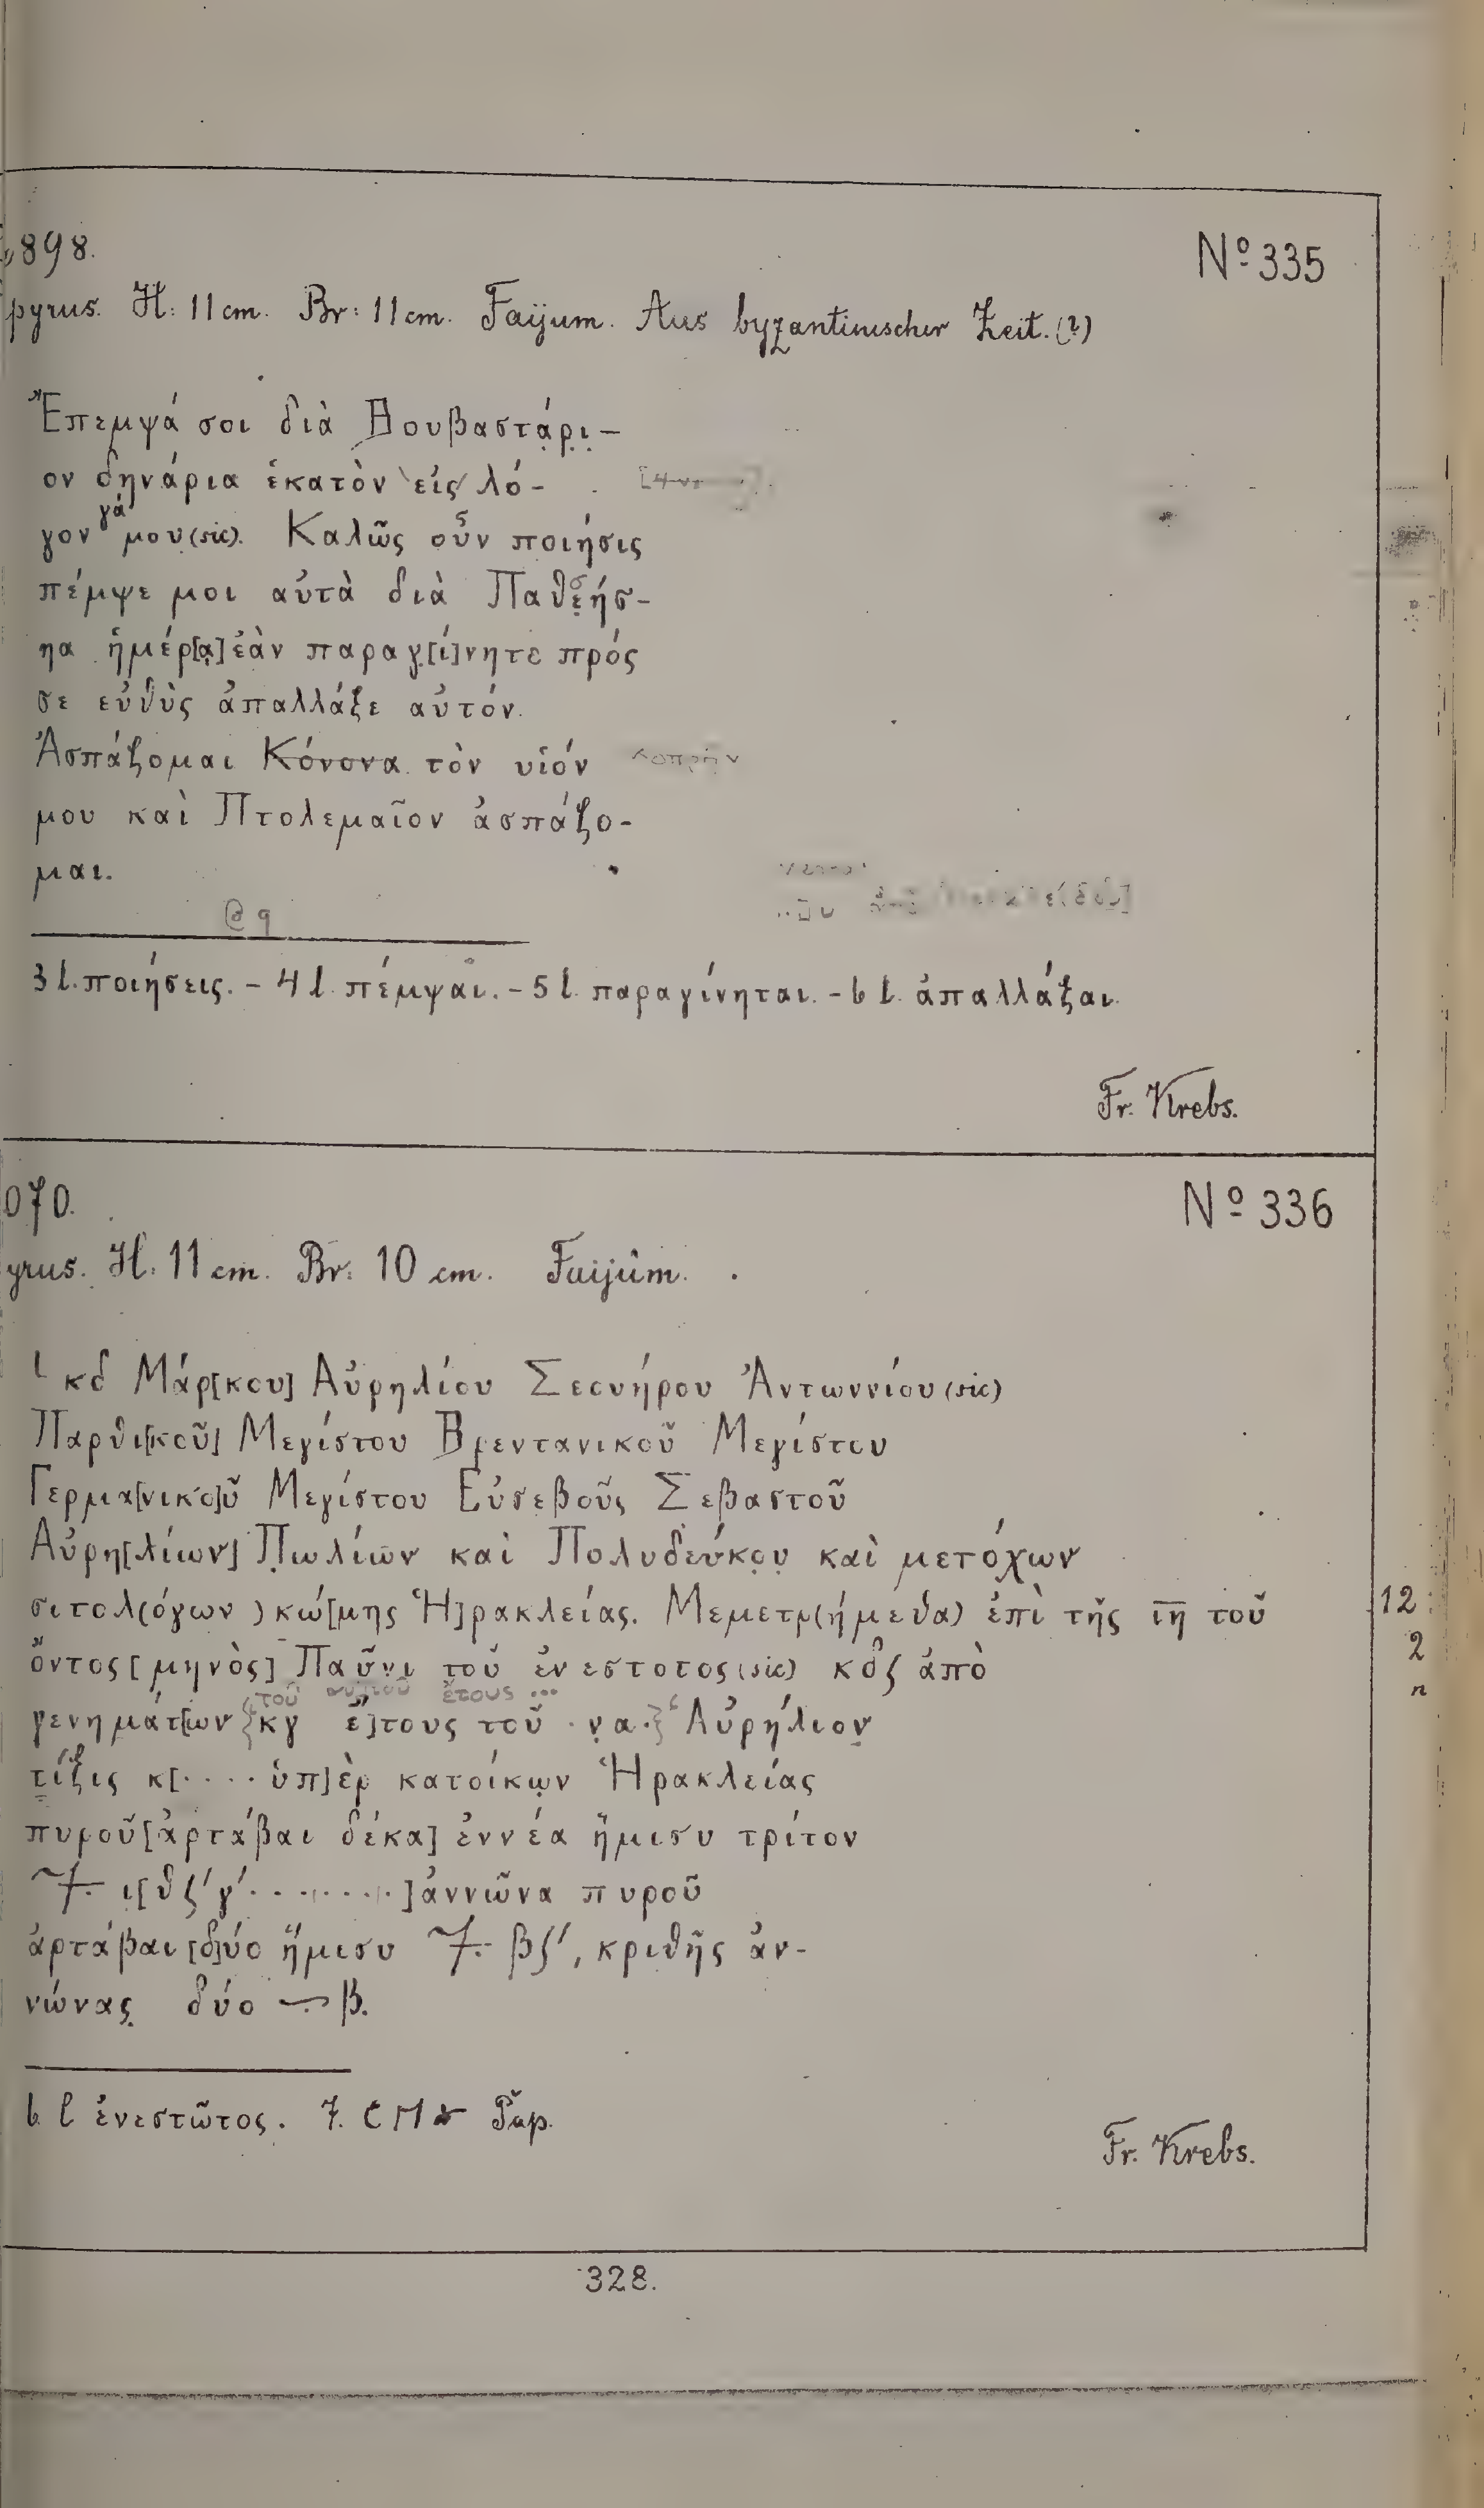 898.
No 335
pyrus. H: 11 cm. Br: 11 cm. Faijum. Aus byzantinischer Zeit. (?)
Ἔπεμψά σοι διὰ Βουβαστάρι-
ον δηνάρια ἑκατὸν εἰς λό-
γον γά μου (sic). Καλῶς οὖν ποιήσις
πέμψε μοι αὐτὰ διὰ Παθεήσ-
ηα ἡμέρ[α] ἐὰν παραγ[ί]νητε πρός
σε εὐθὺς ἀπαλλάξε αὐτόν.
Ἀσπάζομαι Κόνονα τὸν υἱόν
μου καὶ Πτολεμαῖον ἀσπάζο-
μαι.
3 l. ποιήσεις. - 4 l. πέμψαι. - 5 l. παραγίνηται. - 6 l. ἀπαλλάξαι.
Fr. Krebs.
070.
No 336
yrus. H: 11 cm. Br: 10 cm. Faijûm.
L κδ Μάρ[κου] Αὐρηλίου Σεουήρου Ἀντωννίου (sic)
Παρθι[κοῦ] Μεγίστου Βρεντανικοῦ Μεγίστου
Γερμα[νικο]ῦ Μεγίστου Εὐσεβοῦς Σεβαστοῦ
Αὐρη[λίων] Πωλίων καὶ Πολυδεύκου καὶ μετόχων
σιτολ(όγων) κώ[μης Ἡ]ρακλείας. Μεμετρ(ήμεθα) ἐπὶ τῆς ιη τοῦ
12
ὄντος [μηνὸς] Παῦνι τοῦ ἐνεστοτος (sic) κδς ἀπὸ
2
n
τοῦ αὐτοῦ ἔτους ...
γενημάτ[ων κγ ἔ]τους τοῦ · να · Αὐρήλιον
τίξις κ[.... ὑπ]ὲρ κατοίκων Ἡρακλείας
πυροῦ [ἀρτάβαι δέκα] ἐννέα ἥμισυ τρίτον
ι[θς´γ´........] ἀννῶνα πυροῦ
ἀρτάβαι [δ]ύο ἥμισυ βς´, κριθῆς ἀν-
νώνας δύο β.
6 l ἐνεστῶτος. 7. Pap.
Fr. Krebs.
328.